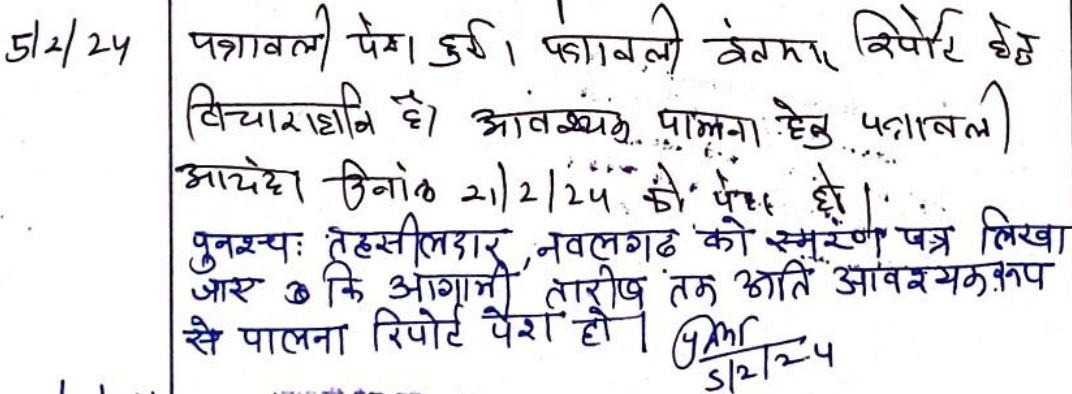 5/2/24 पत्रावली पेश हुई। पत्रावली बंटवारा रिपोर्ट हेतु
विचाराधीन है। आवश्यक पालना हेतु पत्रावली
आयंदा दिनांक 21/2/24 को पेश हो।
पुनश्चः तहसीलदार, नवलगढ को स्मरण पत्र लिखा
जाए कि आगामी तारीख तक अति आवश्यक रूप
से पालना रिपोर्ट पेश हो।
5/2/24